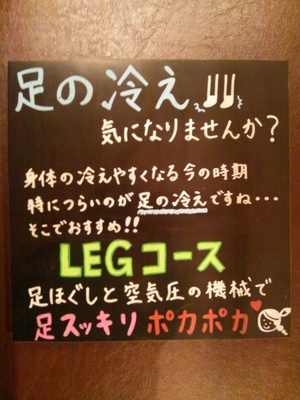 足の冷え
気になりませんか?
身体の冷えやすくなる今の時期
特につらいのが足の冷えですね・・・
そこでおすすめ!!
LEGコース
足ほぐしと空気圧の機械で
足スッキリ ポカポカ♥